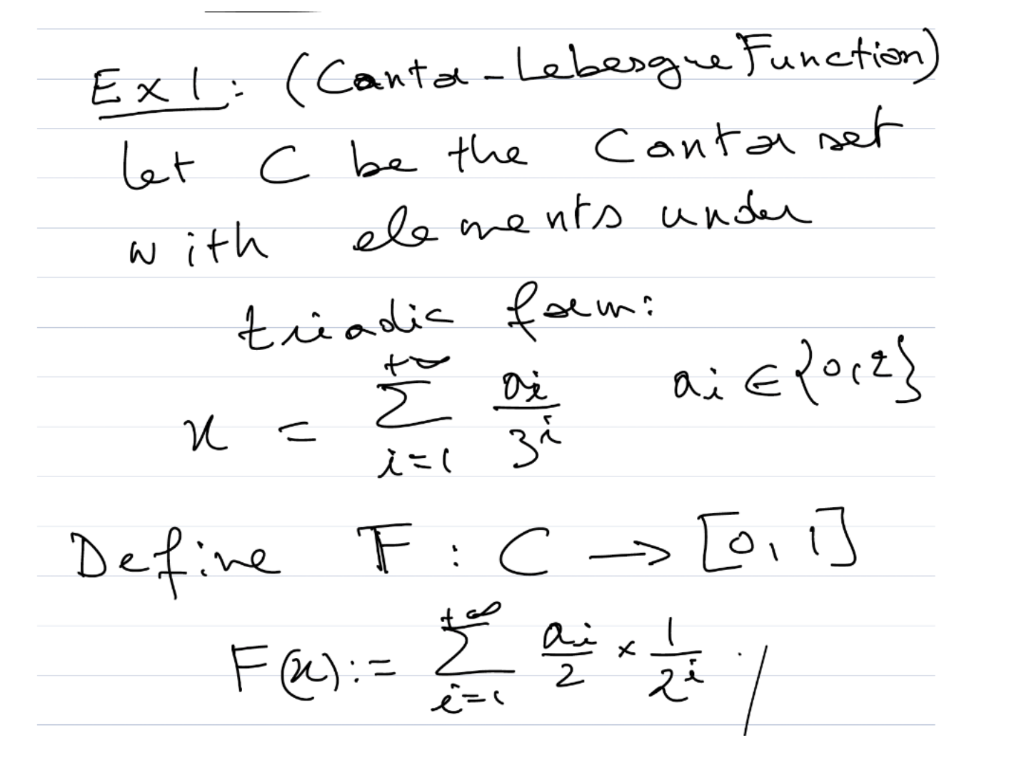 Ex 1: (Cantor-Lebesgue Function)
let C be the Cantor set
with elements under
triadic form:
x = ∑_{i=1}^{+∞} a_i/3^i   a_i ∈ {0,2}
Define F : C → [0,1]
F(x) := ∑_{i=1}^{+∞} a_i/2 × 1/2^i ./